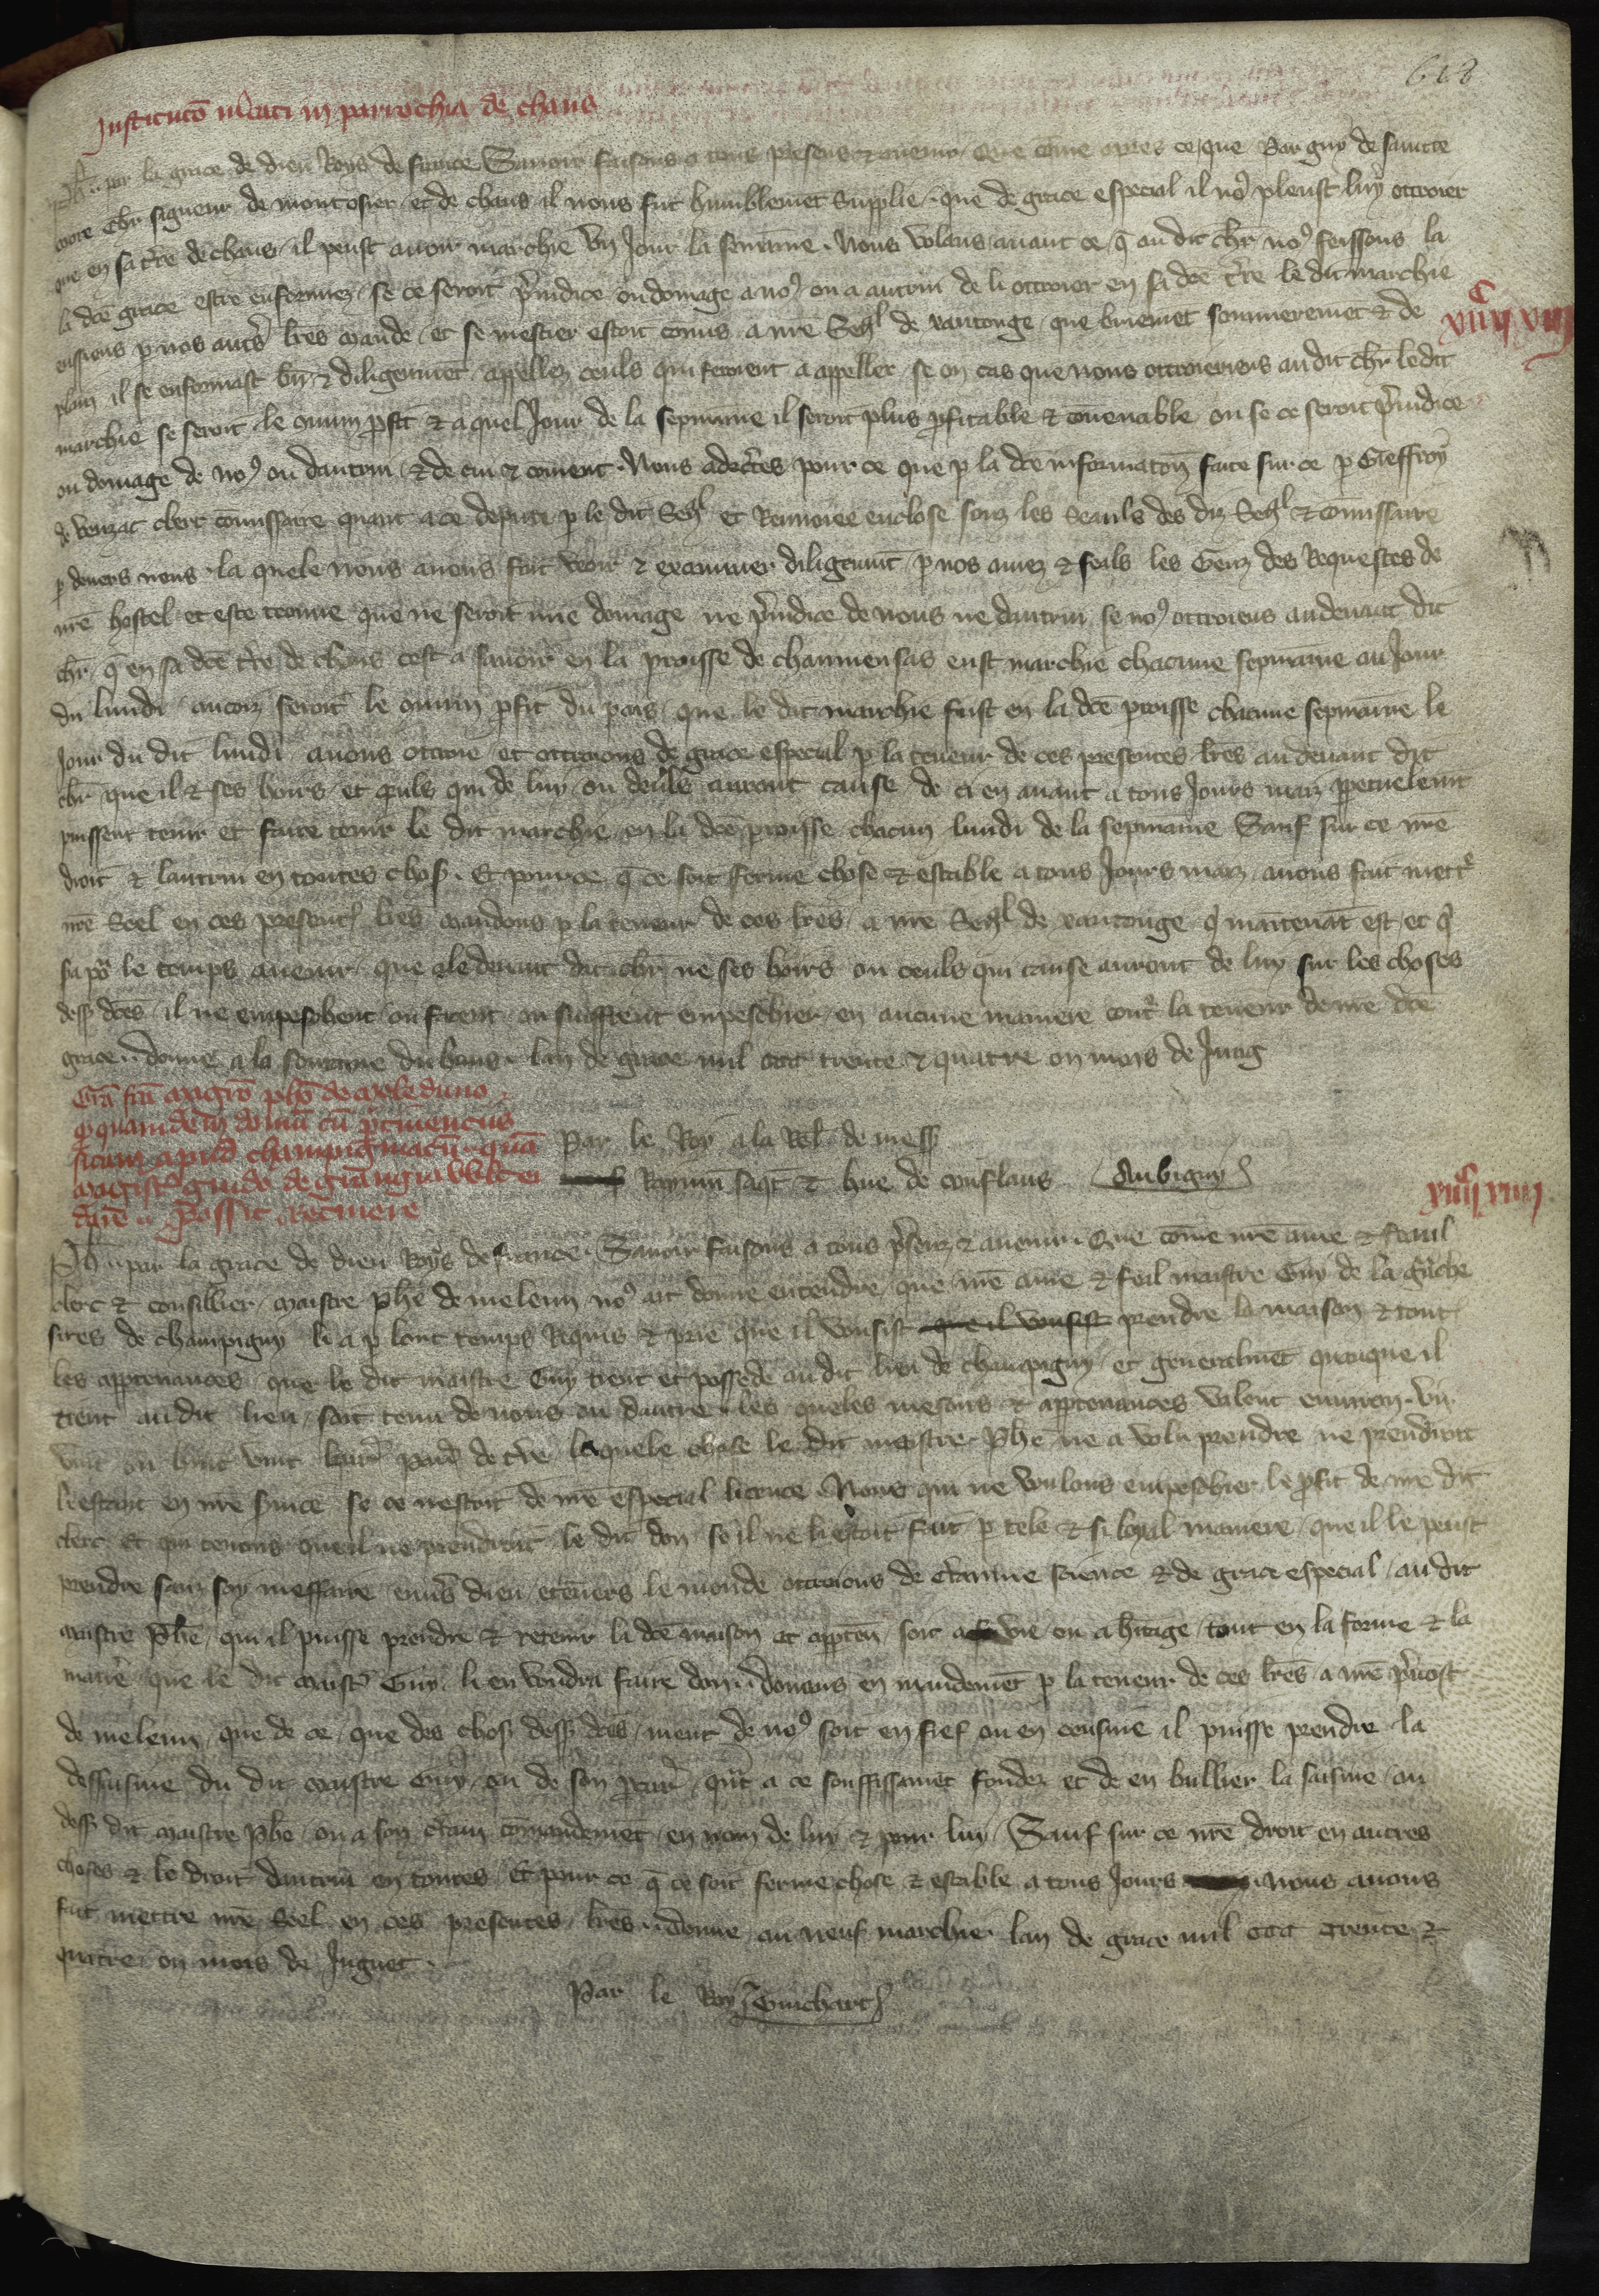 618
Institucō m̄cati in parrochia de chaus
Ph̄ .. par la grace de dieu Roys de france Savoir faisons a tous presens & avenir Que cōme apres ce que par guy de saincte
more chr̄ signeur de montosier et de chaus il nous fut humblemēt Supplie que de grace especial il no9 pleust luy ottroier
que en sa t̄re de chaus il peust avoir marchie un Jour la semaine . Nous volans avant ce q̄ au dit chr̄ no9 feissons la
la dcē grace estre enformez se ce seroit p̄iudice ou domage a no9 ou a autrui de li ottroier en sa dcē t̄re le dit marchie
eussions p nos autr̄ lr̄es mande et se mestier estoit comis a nr̄e Sen̄l de xantonge que briemēt sommeremēt & de
plain il se enformast bn̄ & diligemmēt appellez ceuls qui feroient a appeller se on cas que nous ottroieriens au dit chr̄ ledit
marchie se seroit le cōmun p̄fit & a quel Jour de la sepmaine il seroit plus p̄fitable & cōvenable ou se ce seroit p̄iudice
ou domage de no9 ou dautrui & de cui & cōment . Nous adecertes pour ce que p la dcē informatōn faite sur ce p Gieffroy
de venzac clerc cōmissaire quant a ce depute p le dit Sen̄l et Renvoiee enclose souz les Seauls des diz Sen̄l & cōmissaire
p devers nous la quele nous avons fait veoir & examiner diligemmt̄ p nos amez & feals les Genz des Requestes de
nr̄e hostel et este trouve que ne seroit mie domage ne p̄iudice de nous ne dautrui se no9 ottroiens au devant dit
chr̄ q̄ en sa dcē t̄re de chaus cest a savoir en la proisse de chaumensas eust marchie chacune sepmaine au Jour
du lundi aucois seroit le cōmun p̄fit du pais que le dit marchie fust en la dcē proisse chacune sepmaine le
Jour du dit lundi avons ottroie et ottroions de grace especial p la teneur de ces presentes lr̄es au devant dit
chr̄ que il & ses hoirs et ceuls qui de luy ou deuls auront cause de ci en avant a tous Jours maiz ppetuelemt̄
puissent tenir et faire tenir le dit marchie en la dcē proisse chacun lundi de la sepmaine Sauf sur ce nr̄e
droit & lautrui en toutes chos . Et pour ce q̄ ce soit ferme chose & estable a tous Jours maiz avons fait mett̄
nr̄e Seel en ces present lr̄es mandons p la teneur de ces lr̄es a nr̄e Sen̄l de xantonge q̄ maitenāt est et q̄
sa po' le temps avenir que le devant dit chr̄ ne ses hoirs ou ceuls qui cause auront de luy sur les choses
dess dcēs il ne empeschent ou facent ou sueffrent empeschier en aucune maniere cont̄ la teneur de nr̄e dcē
grace .. donne a la fontaine du hans lan de grace mil ccc trente & quatre on mois de Juing
viiijc viij
Grā fcā magrō pho de meleduno
q quamdem domū cū p̄tinenciis
sitam apud champigniacū quā
magist̄ guido de granchia vult ei
dare possit retinere
Par le Roy a la Rel de mess
Raymū saqt & hue de conflans Aubigny
viiijc viiij
Ph̄ .. par la grace de dieu Roys de france Savoir faisons a tous p̄senz & avenir . Que cōme nr̄e ame & feaul
clerc & conseillier maistre phē de meleun no9 ait donne entendre que nr̄e ame & feil maistre Guy de la gn̄che
sires de champigny li a p lonc temps Requis & prie que il vousist que il vousist prendre la maison & tout
les apptenances que le dit maistre Guy tient et possede au dit lieu de champigny et generalmēt quanque il
tient au dit lieu soit tenu de nous ou dautre les queles mesons & apptenances valent environ vij
vint ou huit vint livr̄ par̄ de t̄re laquele chose le dit maistre Phē ne a volu prendre ne prendroit
li estant en nr̄e s̄vice se ce nestoit de nr̄e especial licence . Nous qui ne voulons empeschier le p̄fit de nr̄e dit
clerc et qui tenons que il ne prendroit le dit don se il ne li estoit fait p tele & si loyal maniere que il le peust
prendre sanz soy meffaire envs̄ dieu et envers le monde ottroions de c̄taine science & de grace especial au dit
maistre Phē qui il puisse prendre & retenir la dcē maison et appten̄ soit a vie ou a h̄itage tout en la forme & la
manē que le dit maist̄ Guy li en voudra faire don .. donnans en mandemēt p la teneur de ces lr̄es a nr̄e p̄vost
de meleun que de ce que des chos dess dcēs muet de no9 soit en fief ou en censive il puisse prendre la
dessaisine du dit maistre Guy ou de son p̄cur̄ qn̄t a ce souffissanmēt fondez et de en bailler la saisine au
dess dit maistre Phē ou a son c̄tain cōmandemēt en nom de luy & pour luy Sauf sur ce nr̄e droit en autres
choses & le droit dautrui en toutes Et pour ce q̄ ce soit ferme chose & estable a tous Jours nous avons
fait mettre nr̄e Seel en ces presentes lr̄es .. donne au neuf marchie lan de grace mil ccc trente &
quatre on mois de Juignet .
Par le Roy Guichart